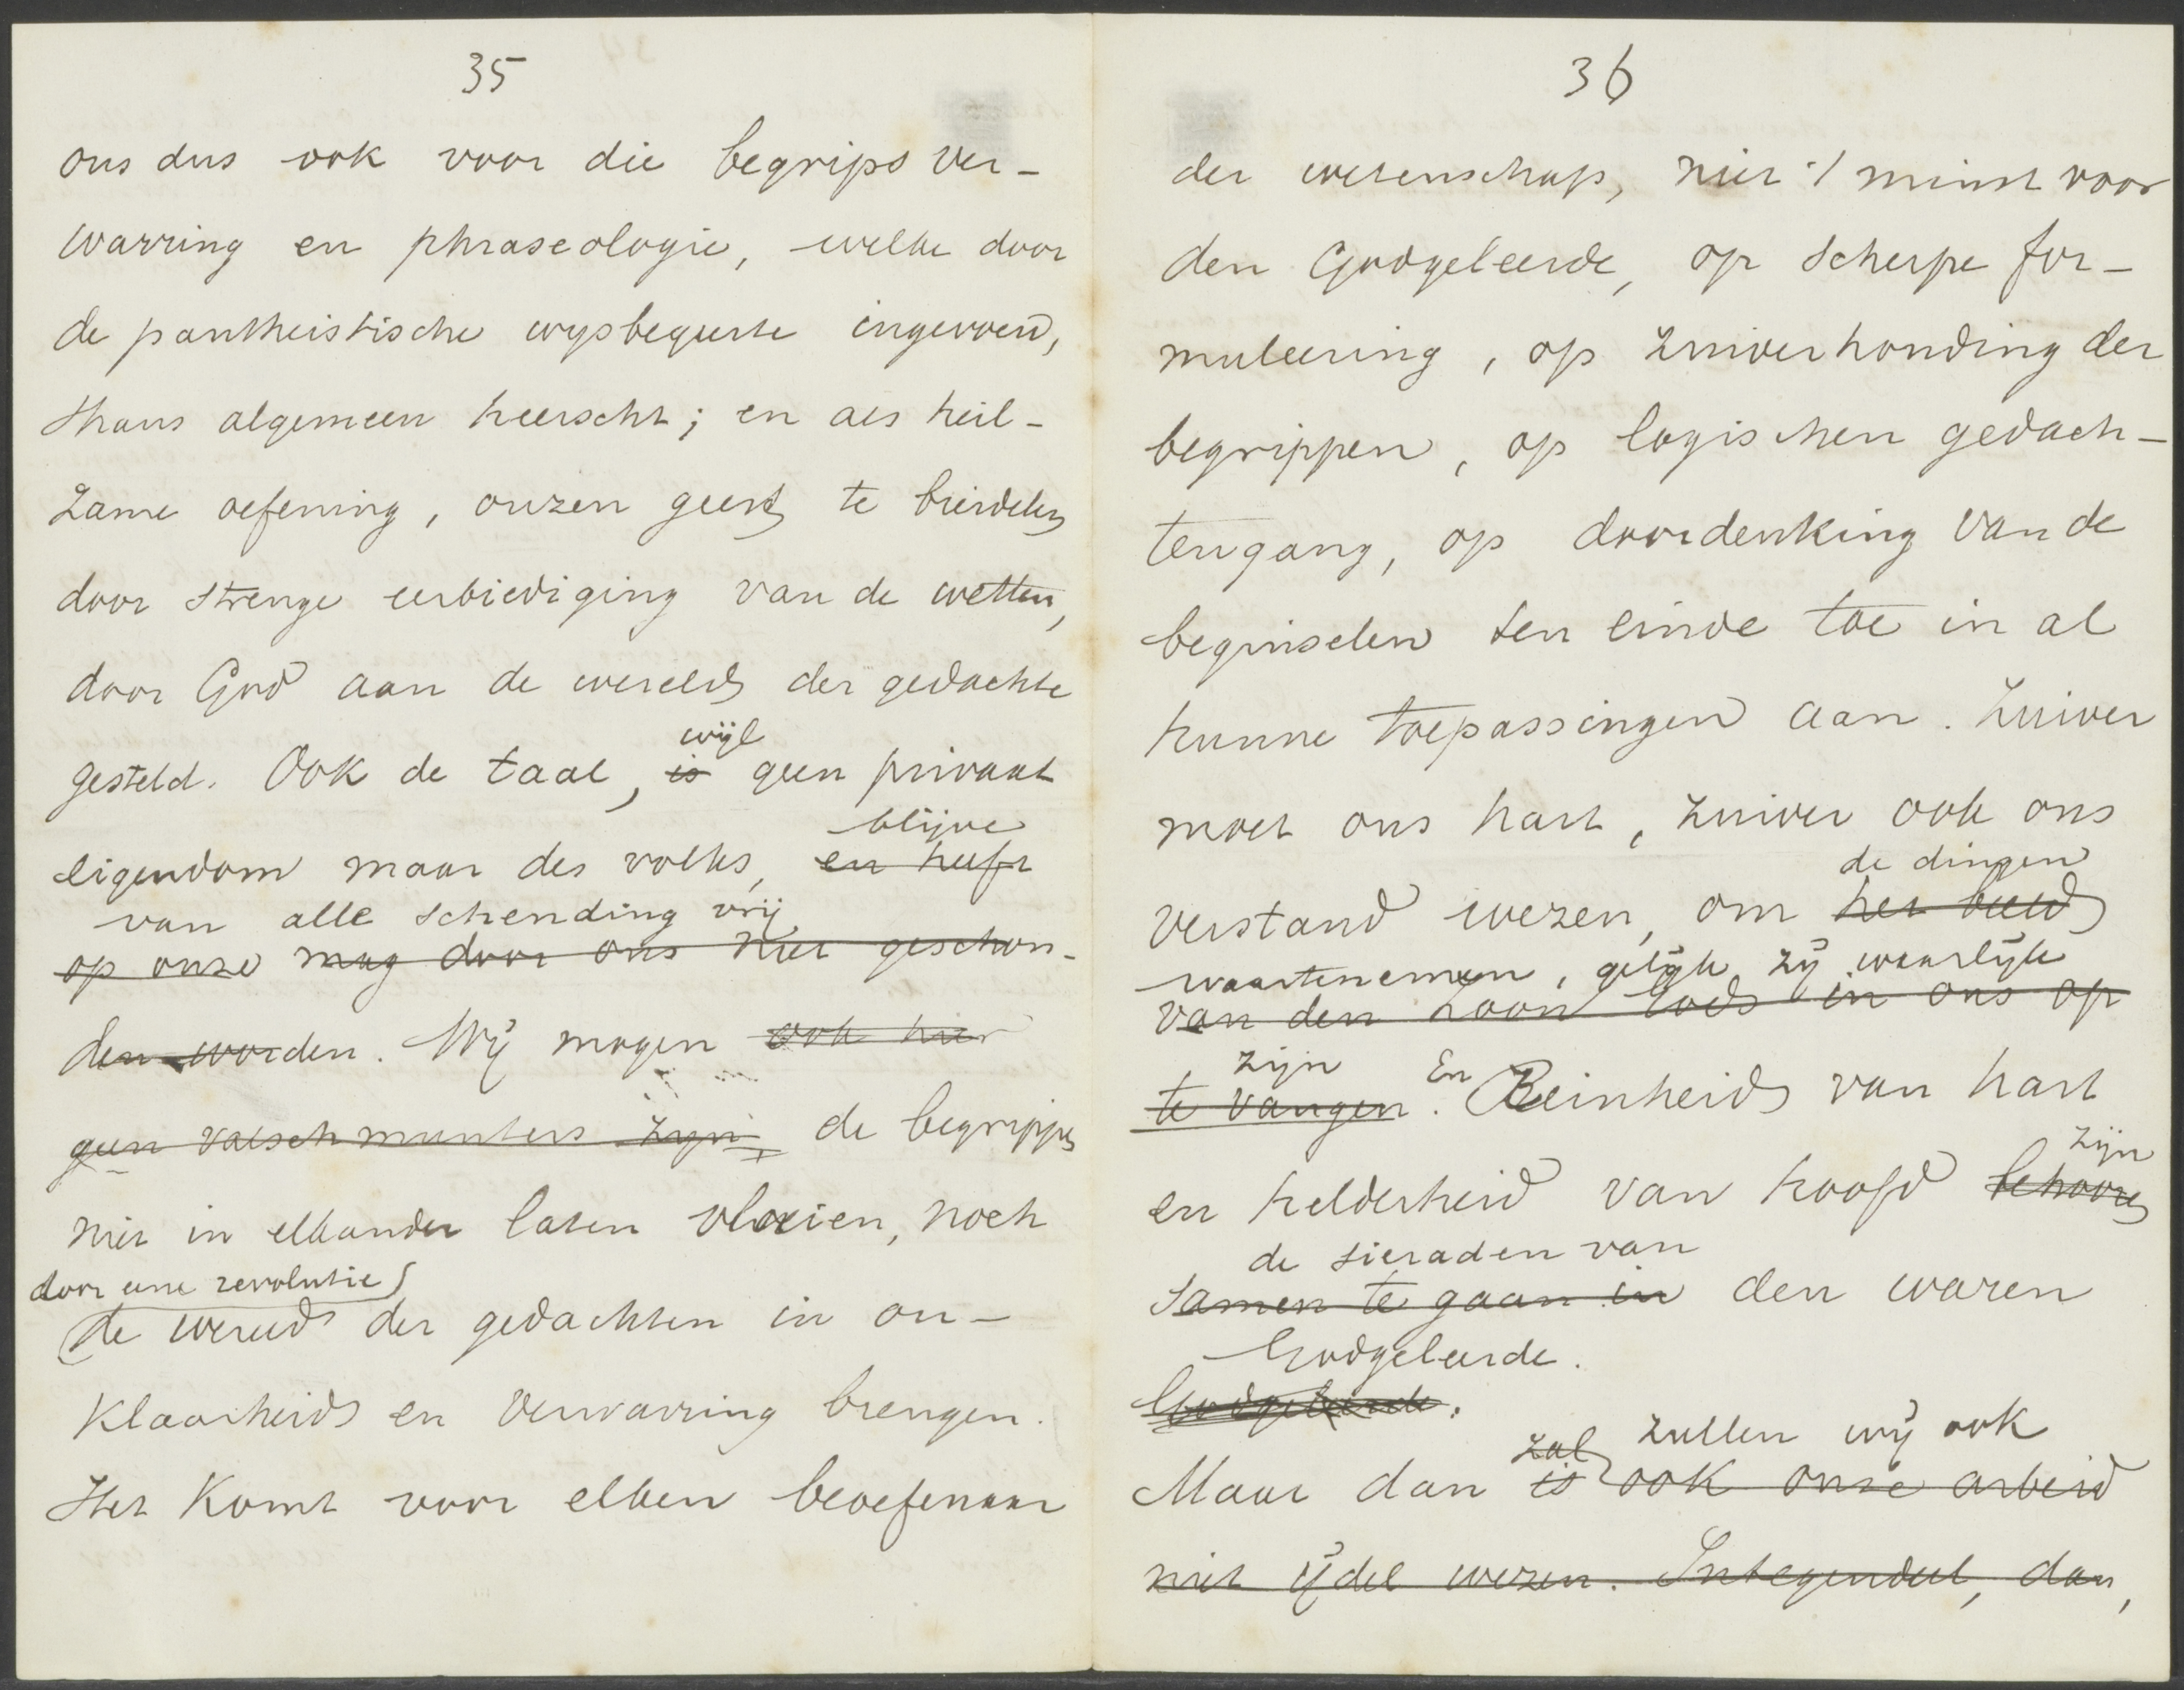 35
ons dus ook voor die begrips ver-
warring en phraseologie, welke door
de pantheistische wysbegeerte ingevoerd,
thans algemeen heerscht; en als heil-
zame oefening, onzen geest te breidelen
door strenge eerbiediging van de wetten,
door God aan de wereld der gedachte
wijl
gesteld. Ook de taal, is geen privaat
blijve
eigendom maar des volks, en heeft
van alle schending vrij
op onze mag door ons niet geschon-
den worden. Wij mogen ook hier
geen valschmunters zijn, de begrippen
niet in elkander laten vloeien, noch
door eene revolutie
de wereld der gedachten in on-
klaarheid en verwarring brengen.
Het komt voor elken beoefenaar
36
der wetenschap, niet 't minst voor
den Godgeleerde, op scherpe for-
muleering, op zuiverhouding der
begrippen, op logischen gedach-
tengang, op doordenking van de
beginselen ten einde toe in al
hunne toepassingen aan. Zuiver
moet ons hart, zuiver ook ons
de dingen
verstand wezen, om het beeld
waartenemen, gelijk zij waarlijk
van den Zoon Gods in ons op
zijn En
te vangen. Reinheid van hart
zijn
en helderheid van hoofd behooren
de sieraden van
samen te gaan in den waren
Godgeleerde.
Godgeleerde.
zal zullen wij ook
Maar dan is ook onze arbeid
niet ijdel wezen. Integendeel, dan,